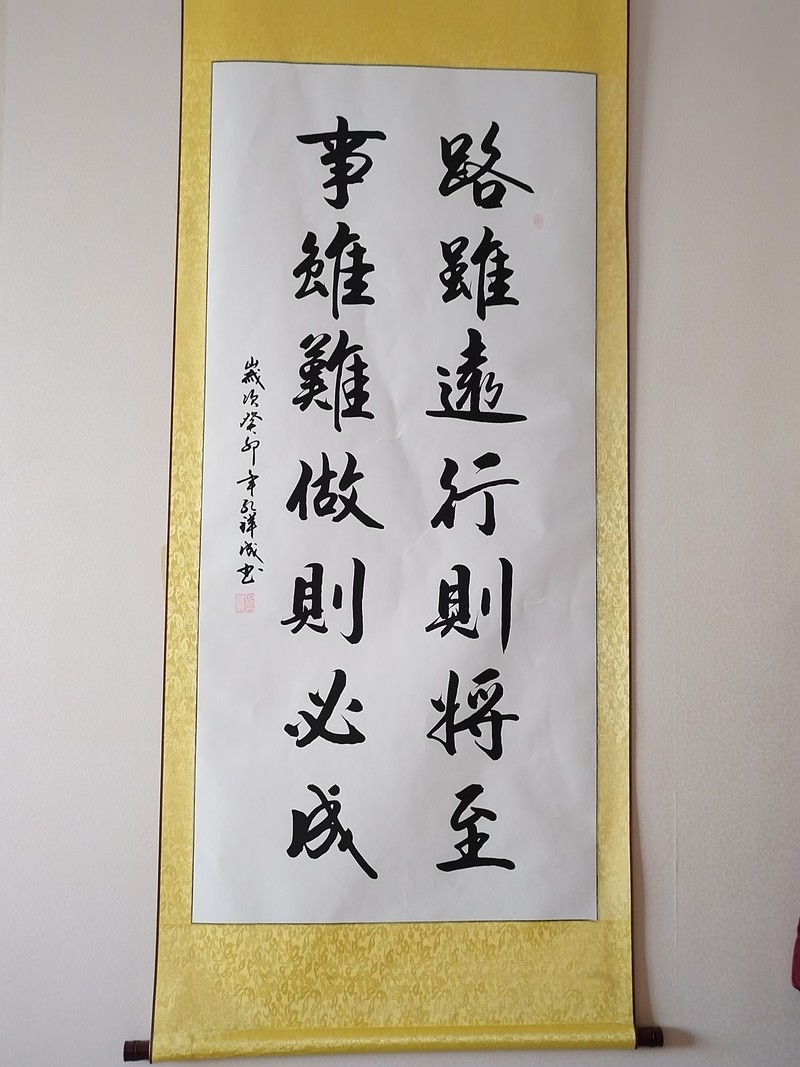 路雖遠行則將至
事雖難做則必成
歲次癸卯年孔祥成书